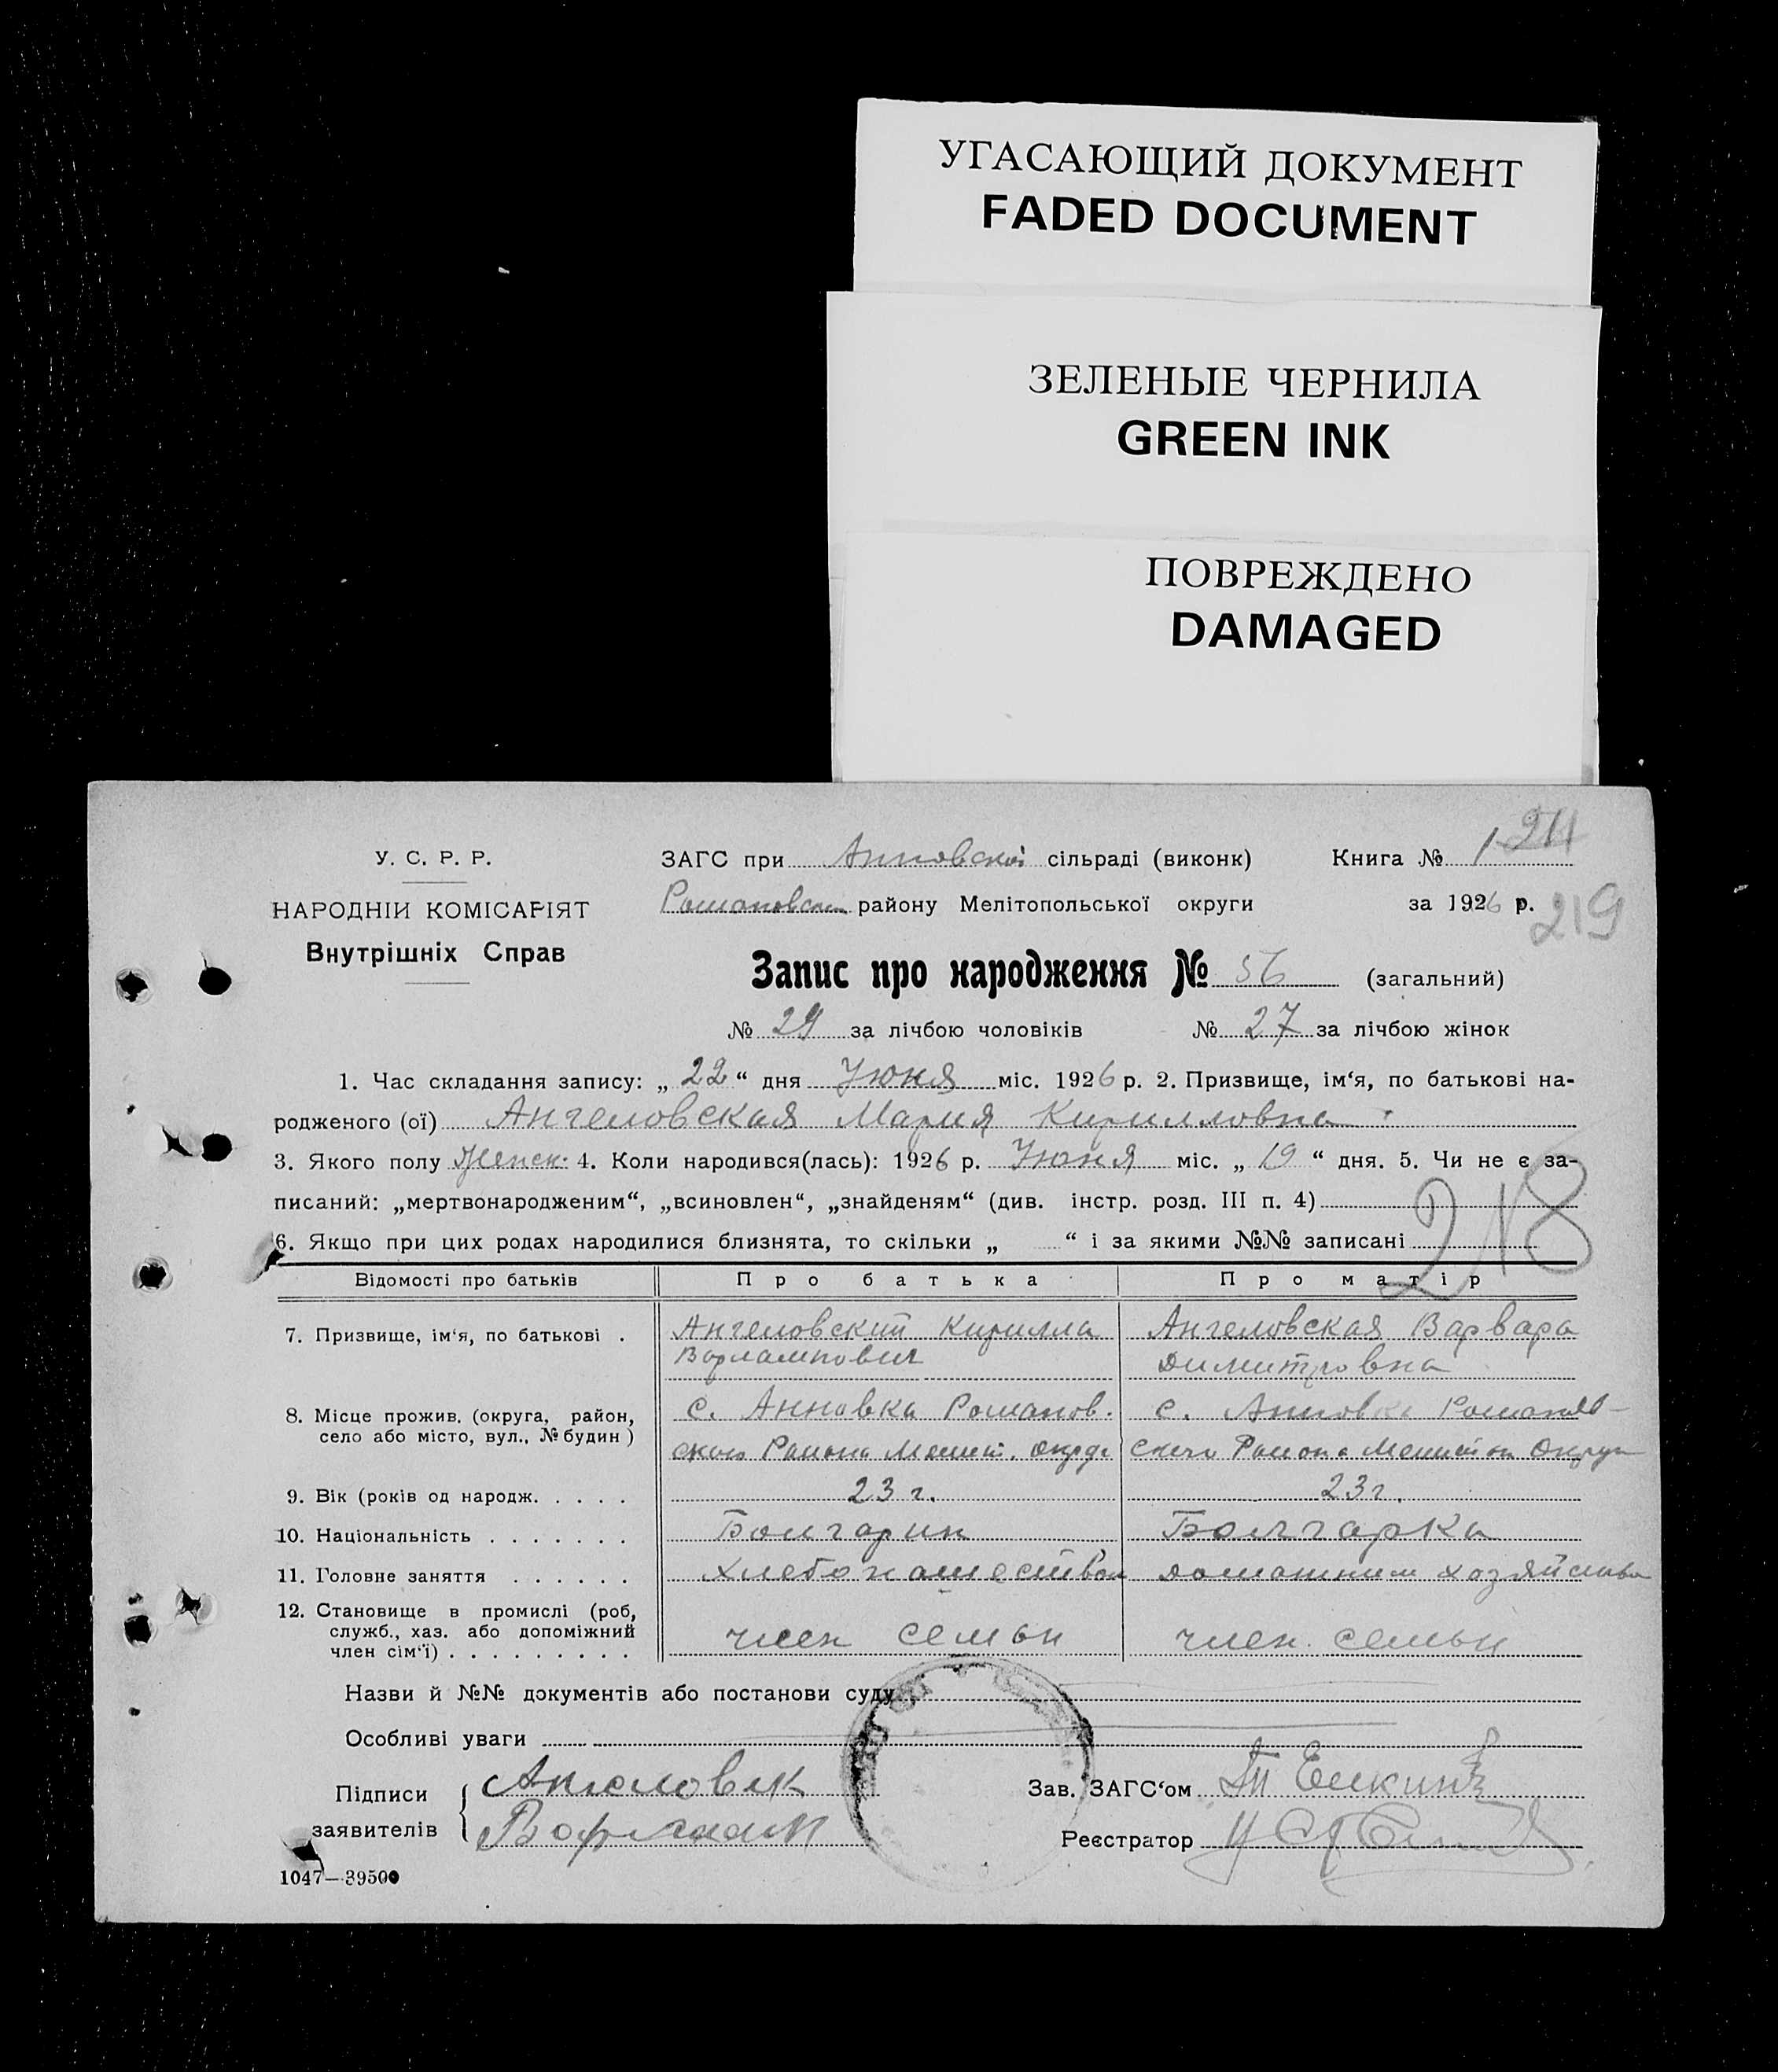 УГАСАЮЩИЙ ДОКУМЕНТ
FADED DOCUMENT
ЗЕЛЕНЫЕ ЧЕРНИЛА
GREEN INK
ПОВРЕЖДЕНО
DAMAGED
У. С. Р. Р.
НАРОДНІИ КОМІСАРІЯТ
Внутрішніх Справ
ЗАГС при Анновской сільраді (виконк) Книга № 1
Романовском району Мелітопольської округи за 1926 р.
219
Запис про народження № 56 (загальний)
№ 29 за лічбою чоловіків № 27 за лічбою жінок
1. Час складання запису: „ 22 “ дня Июня міс. 1926 р. 2. Призвище, ім‘я, по батькові на-
родженого (ої) Ангеловская Мария Кирилловна
3. Якого полу Женск. 4. Коли народився(лась): 1926 р. Июня міс. „ 19 “ дня. 5. Чи не є за-
писаний: „мертвонародженим“, „всиновлен“, „знайденям“ (див. інстр. розд. III п. 4)
218
6. Якщо при цих родах народилися близнята, то скільки „ “ і за якими №№ записані
Відомості про батьків Про батька Про матір
7. Призвище, ім‘я, по батькові . Ангеловский Кирилла Ангеловская Варвара
Варлампович Димитровна
8. Місце прожив. (округа, район, с. Анновка Романов. с. Анновка Романов-
село або місто, вул., № будин) ского Района Мелит. Округ ского Района Мелитоп Округи
9. Вік (років од народж. . . . . 23 г. 23 г.
10. Національність . . . . . . . Болгарин Болгарка
11. Головне заняття . . . . . . Хлебопашеством домашним хозяйством
12. Становище в промислі (роб,
служб., хаз. або допоміжний член семьи член семьи
член сім‘ї) . . . . . . . . .
Назви й №№ документів або постанови суду
Особливі уваги
Підписи
заявителів
Зав. ЗАГС‘ом
Реєстратор
1047—39500